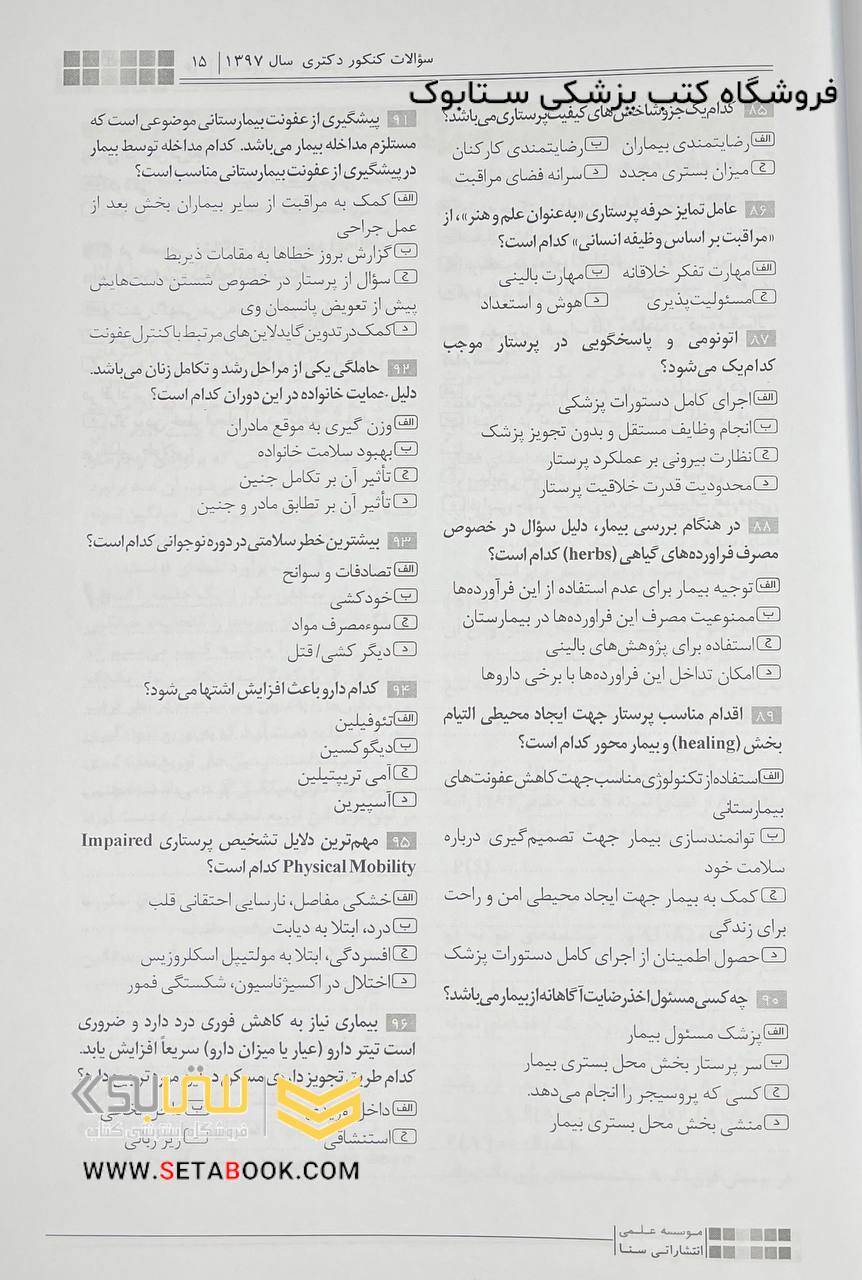 سؤالات کنکور دکتری سال ۱۳۹۷ | ۱۵
فروشگاه کتب پزشکی ستابوک
۸۵ کدام‌یک جزو شاخص‌های کیفیت پرستاری می‌باشد؟
الف رضایتمندی بیماران ب رضایتمندی کارکنان
ج میزان بستری مجدد د سرانه فضای مراقبت
۸۶ عامل تمایز حرفه پرستاری «به‌عنوان علم و هنر»، از
«مراقبت بر اساس وظیفه انسانی» کدام است؟
الف مهارت تفکر خلاقانه ب مهارت بالینی
ج مسئولیت‌پذیری د هوش و استعداد
۸۷ اتونومی و پاسخگویی در پرستار موجب
کدام‌یک می‌شود؟
الف اجرای کامل دستورات پزشکی
ب انجام وظایف مستقل و بدون تجویز پزشک
ج نظارت بیرونی بر عملکرد پرستار
د محدودیت قدرت خلاقیت پرستار
۸۸ در هنگام بررسی بیمار، دلیل سؤال در خصوص
مصرف فراورده‌های گیاهی (herbs) کدام است؟
الف توجیه بیمار برای عدم استفاده از این فرآورده‌ها
ب ممنوعیت مصرف این فراورده‌ها در بیمارستان
ج استفاده برای پژوهش‌های بالینی
د امکان تداخل این فراورده‌ها با برخی داروها
۸۹ اقدام مناسب پرستار جهت ایجاد محیطی التیام
بخش (healing) و بیمار محور کدام است؟
الف استفاده از تکنولوژی مناسب جهت کاهش عفونت‌های
بیمارستانی
ب توانمندسازی بیمار جهت تصمیم‌گیری درباره
سلامت خود
ج کمک به بیمار جهت ایجاد محیطی امن و راحت
برای زندگی
د حصول اطمینان از اجرای کامل دستورات پزشک
۹۰ چه کسی مسئول اخذ رضایت آگاهانه از بیمار می‌باشد؟
الف پزشک مسئول بیمار
ب سر پرستار بخش محل بستری بیمار
ج کسی که پروسیجر را انجام می‌دهد.
د منشی بخش محل بستری بیمار
۹۱ پیشگیری از عفونت بیمارستانی موضوعی است که
مستلزم مداخله بیمار می‌باشد. کدام مداخله توسط بیمار
در پیشگیری از عفونت بیمارستانی مناسب است؟
الف کمک به مراقبت از سایر بیماران بخش بعد از
عمل جراحی
ب گزارش بروز خطاها به مقامات ذیربط
ج سؤال از پرستار در خصوص شستن دست‌هایش
پیش از تعویض پانسمان وی
د کمک در تدوین گایدلاین‌های مرتبط با کنترل عفونت
۹۲ حاملگی یکی از مراحل رشد و تکامل زنان می‌باشد.
دلیل حمایت خانواده در این دوران کدام است؟
الف وزن گیری به موقع مادران
ب بهبود سلامت خانواده
ج تأثیر آن بر تکامل جنین
د تأثیر آن بر تطابق مادر و جنین
۹۳ بیشترین خطر سلامتی در دوره نوجوانی کدام است؟
الف تصادفات و سوانح
ب خودکشی
ج سوءمصرف مواد
د دیگر کشی/ قتل
۹۴ کدام دارو باعث افزایش اشتها می‌شود؟
الف تئوفیلین
ب دیگوکسین
ج آمی تریپتیلین
د آسپیرین
۹۵ مهم‌ترین دلایل تشخیص پرستاری Impaired
Physical Mobility کدام است؟
الف خشکی مفاصل، نارسایی احتقانی قلب
ب درد، ابتلا به دیابت
ج افسردگی، ابتلا به مولتیپل اسکلروزیس
د اختلال در اکسیژناسیون، شکستگی فمور
۹۶ بیماری نیاز به کاهش فوری درد دارد و ضروری
است تیتر دارو (عیار یا میزان دارو) سریعاً افزایش یابد.
کدام طریق تجویز داروی مسکن
الف داخل وریدی ب
ج استنشاقی د زیر زبانی
ستابوک
فروشگاه اینترنتی کتاب
WWW.SETABOOK.COM
موسسه علمی
انتشاراتی سنا